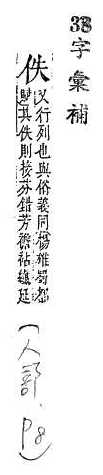 38
字彙補
佚
又行列也與佾義同楊雄蜀都
賦其佚則接芬錯芳襜袩纖延
(人部.P8)